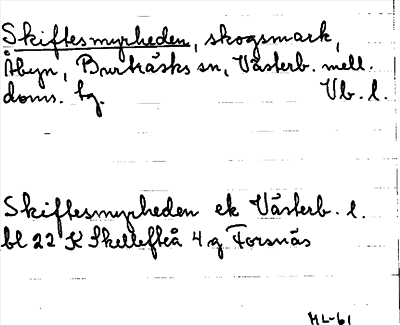 Skiftesmyrheden, skogsmark,
Åbyn, Burträsks sn, Västerb. mell.
doms. tg. Vb. l.
Skiftesmyrheden ek Västerb. l.
bl 22 K Skellefteå 4 g Forsnäs
HL-61